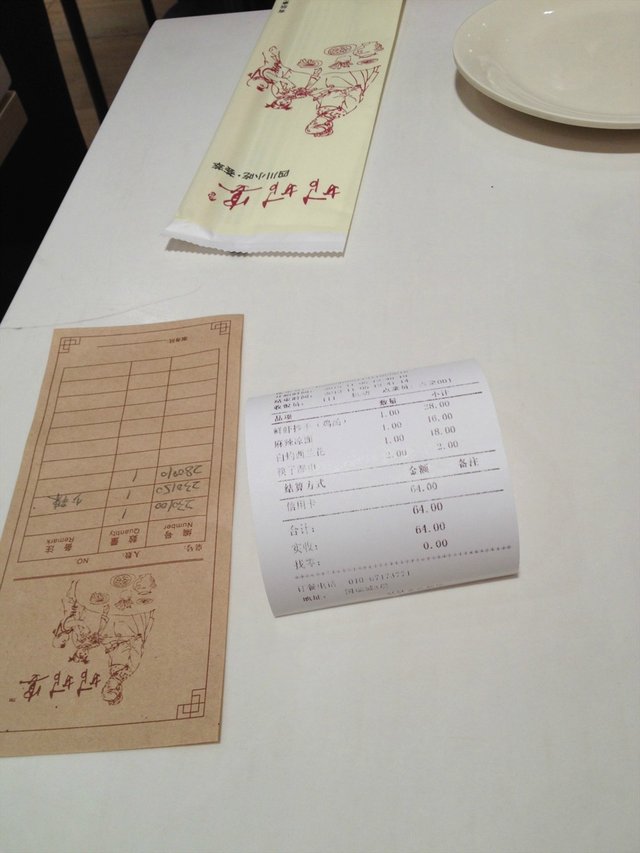 四川小吃·套餐
好好家
品项 数量 小计
鲜虾抄手(鸡汤) 1.00 28.00
麻辣凉面 1.00 16.00
白灼西兰花 1.00 18.00
筷子 2.00 2.00
结算方式 金额 备注
信用卡 64.00
合计: 64.00
实收: 64.00
找零: 0.00
订餐电话 010-67174771
地址:
服务员
280010 1
230150 1
230100 1
编号 数量 备注
Number Quantity Remark
桌号 人数 NO